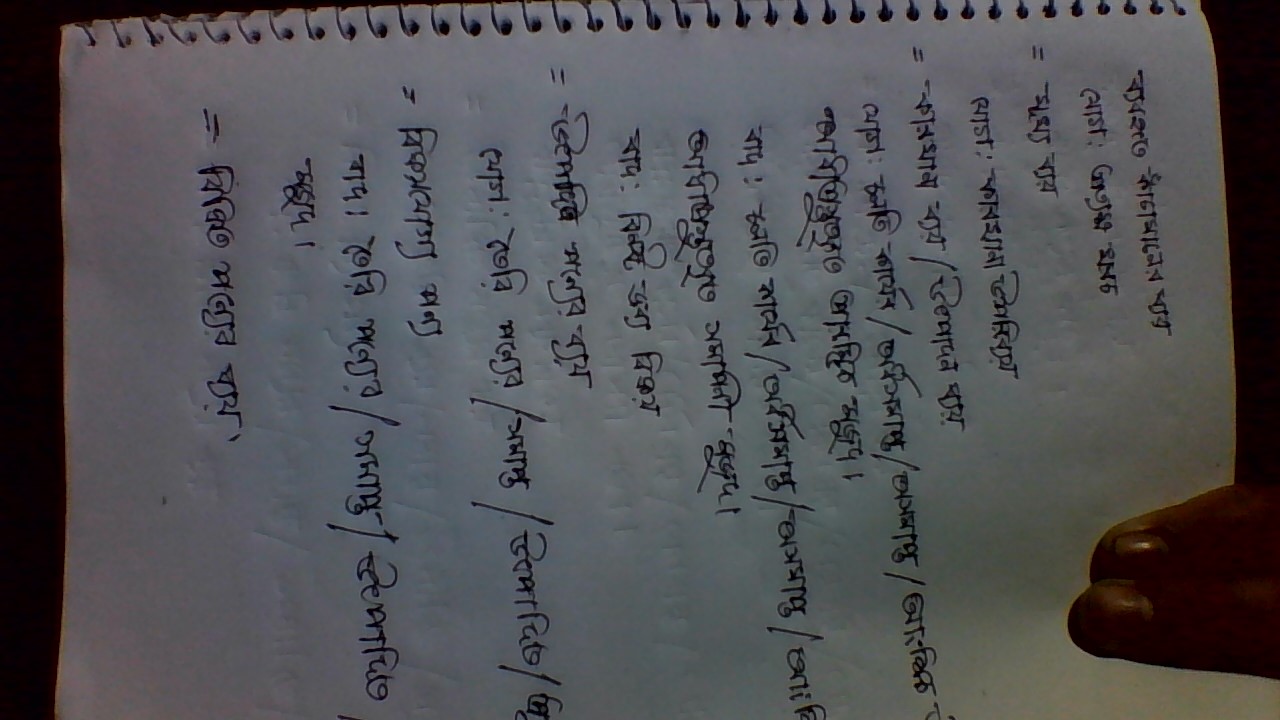 ব্যবহৃত কাঁচামালের ব্যয়
যোগ: প্রত্যক্ষ খরচ
= মূখ্য ব্যয়
যোগ: কারখানা উপরিব্যয়
= কারখানা ব্যয় / উৎপাদন ব্যয়
যোগ: চলতি কার্যের / অর্ধসমাপ্ত / অসমাপ্ত / আংশিক
আধাপ্রস্তুতকৃত প্রারম্ভিক মজুদ।
বাদ: চলতি কার্যের / অর্ধসমাপ্ত / অসমাপ্ত /
আধাপ্রস্তুতকৃত সমাপনী মজুদ।
বাদ: বিনষ্ট দ্রব্য বিক্রয়
= উৎপাদিত পন্যের ব্যয়
যোগ: তৈরি পন্যের / সমাপ্ত / উৎপাদিত /
= বিক্রয়যোগ্য পন্য
বাদ। তৈরি পন্যের / সমাপ্ত / উৎপাদিত
মজুদ।
= বিক্রিত পন্যের ব্যয়।